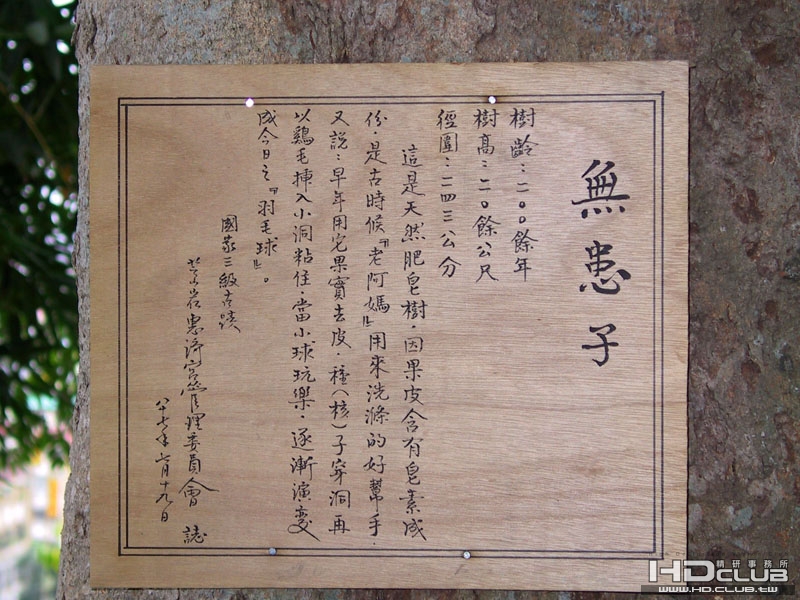 無患子
樹齡：二〇〇餘年
樹高：二〇餘公尺
徑圍：二四三公分
這是天然肥皂樹，因果皮含有皂素成
份，是古時候『老阿媽』用來洗滌的好幫手，
又說：早年用它果實去皮，種（核）子穿洞再
以鷄毛揷入小洞粘住，當小球玩樂，逐漸演變
成今日之『羽毛球』。
國家三級古蹟
芝山岩惠濟宮管理委員會 誌
八十七年 月十九日
精研事務所
HDCLUB
WWW.HD.CLUB.TW